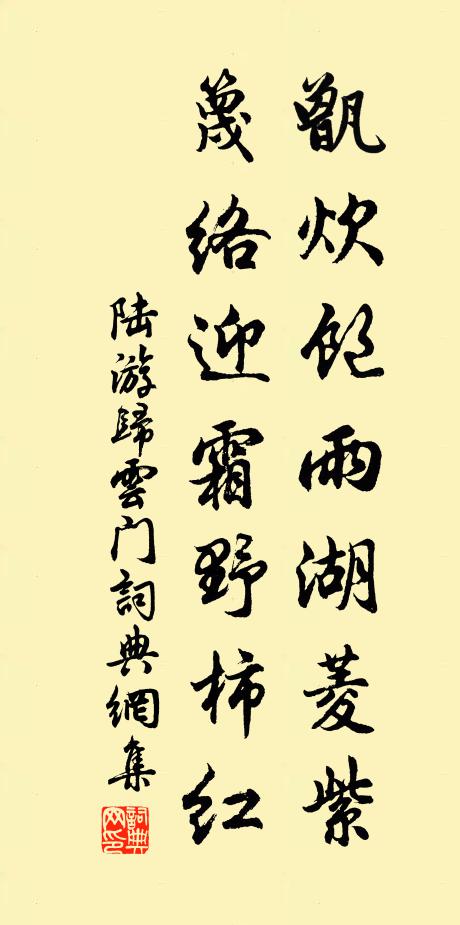 甑炊飽雨湖菱紫
篾絡迎霜野柿紅
陸游歸雲門詞典網集
詞典网印